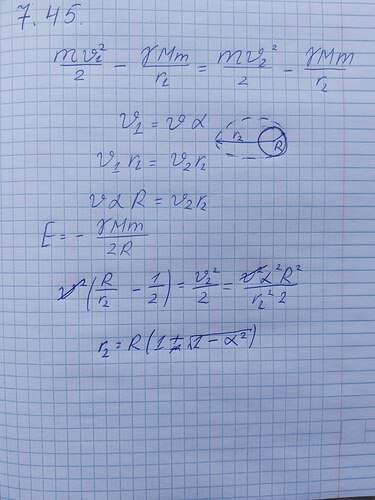 7.45.
mv₁²/2 − γMm/r₁ = mv₂²/2 − γMm/r₂
v₁ = vα
r₂ R
v₁r₁ = v₂r₂
vαR = v₂r₂
E = − γMm/2R
v²(R/r₂ − 1/2) = v₂²/2 = v²α²R²/r₂²2
r₂ = R(1 ± √1 − α²)